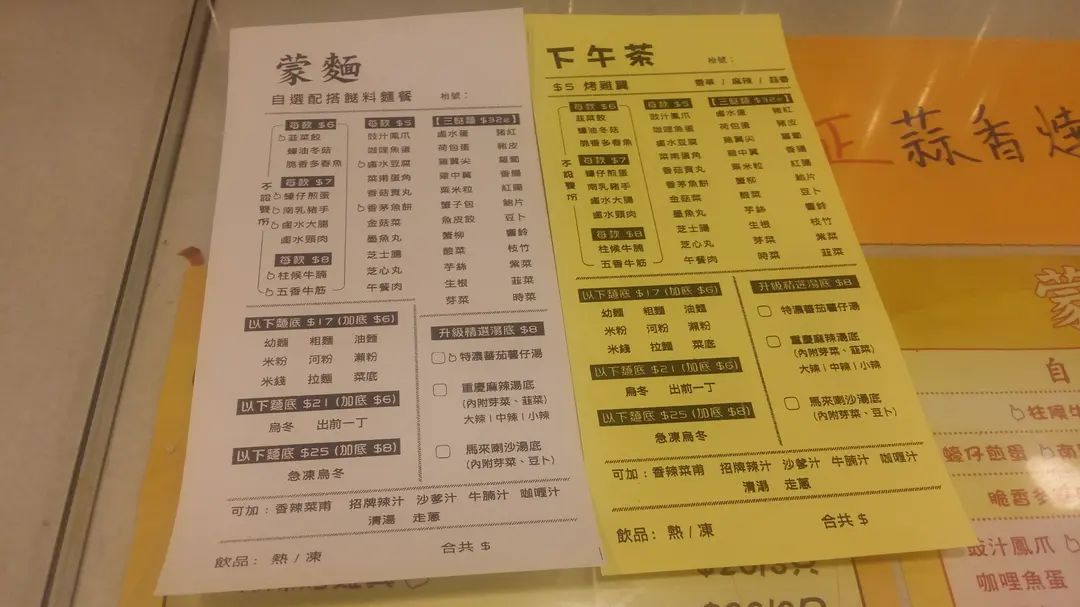 蒙麵
自選配搭餸料麵餐 枱號：
每款 $6
韮菜餃
蠔油冬菇
脆香多春魚
每款 $7
蠔仔煎蛋
南乳豬手
鹵水大腸
鹵水頸肉
每款 $8
柱候牛腩
五香牛筋
不設雙份
每款 $5
豉汁鳳爪
咖哩魚蛋
鹵水豆腐
菜甫蛋角
香菇貢丸
香茅魚餅
金菇菜
墨魚丸
芝士腸
芝心丸
午餐肉
【三餸麵 $32起】
鹵水蛋 豬紅
荷包蛋 豬皮
雞翼尖 蘿蔔
雞中翼 香腸
粟米粒 紅腸
蟹子包 鮑片
魚皮餃 豆卜
蟹柳 響鈴
酸菜 枝竹
芋絲 紫菜
生根 韮菜
芽菜 時菜
以下麵底 $17 (加底 $6)
幼麵 粗麵 油麵
米粉 河粉 瀨粉
米綫 拉麵 菜底
以下麵底 $21 (加底 $6)
烏冬 出前一丁
以下麵底 $25 (加底 $8)
急凍烏冬
升級精選湯底 $8
特濃蕃茄薯仔湯
重慶麻辣湯底
(內附芽菜、韮菜)
大辣 | 中辣 | 小辣
馬來喇沙湯底
(內附芽菜、豆卜)
可加：香辣菜甫 招牌辣汁 沙爹汁 牛腩汁 咖喱汁
清湯 走蔥
飲品： 熱 / 凍 合共 $
下午茶 枱號：
$5 烤雞翼 香草 / 麻辣 / 蒜香
每款 $6
韮菜餃
蠔油冬菇
脆香多春魚
每款 $7
蠔仔煎蛋
南乳豬手
鹵水大腸
鹵水頸肉
每款 $8
柱候牛腩
五香牛筋
不設雙份
每款 $5
豉汁鳳爪
咖哩魚蛋
鹵水豆腐
菜甫蛋角
香菇貢丸
香茅魚餅
金菇菜
墨魚丸
芝士腸
芝心丸
午餐肉
【三餸麵 $32起】
鹵水蛋 豬紅
荷包蛋 豬皮
雞翼尖 蘿蔔
雞中翼 香腸
粟米粒 紅腸
蟹柳 鮑片
酸菜 豆卜
芋絲 響鈴
生根 枝竹
芽菜 紫菜
時菜 韮菜
以下麵底 $17 (加底 $6)
幼麵 粗麵 油麵
米粉 河粉 瀨粉
米綫 拉麵 菜底
以下麵底 $21 (加底 $6)
烏冬 出前一丁
以下麵底 $25 (加底 $8)
急凍烏冬
升級精選湯底 $8
特濃蕃茄薯仔湯
重慶麻辣湯底
(內附芽菜、韮菜)
大辣 | 中辣 | 小辣
馬來喇沙湯底
(內附芽菜、豆卜)
可加：香辣菜甫 招牌辣汁 沙爹汁 牛腩汁 咖喱汁
清湯 走蔥
飲品： 熱 / 凍 合共 $
正 蒜香燒
蒙
自
蠔仔煎蛋
脆香多
豉汁鳳爪
咖哩魚蛋